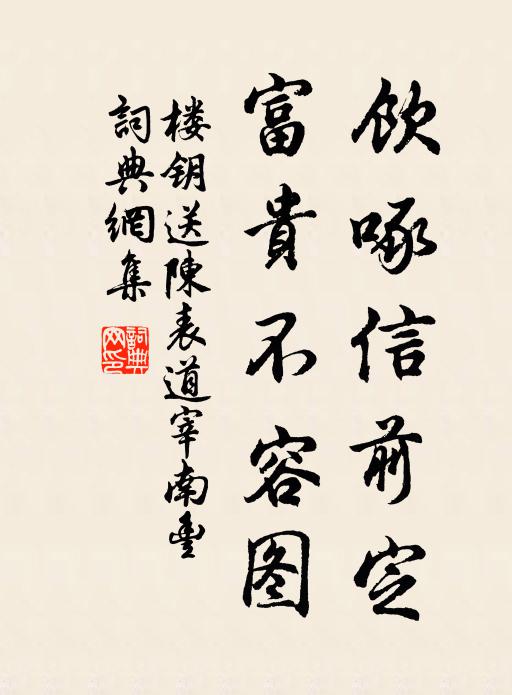 飲啄信前定
富貴不容图
楼钥送陳表道宰南豐
詞典網集
詞典
网印